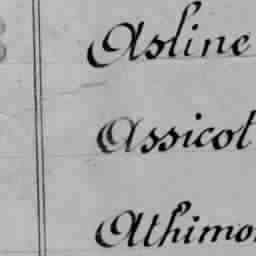 Asline
Assicot
Athimo